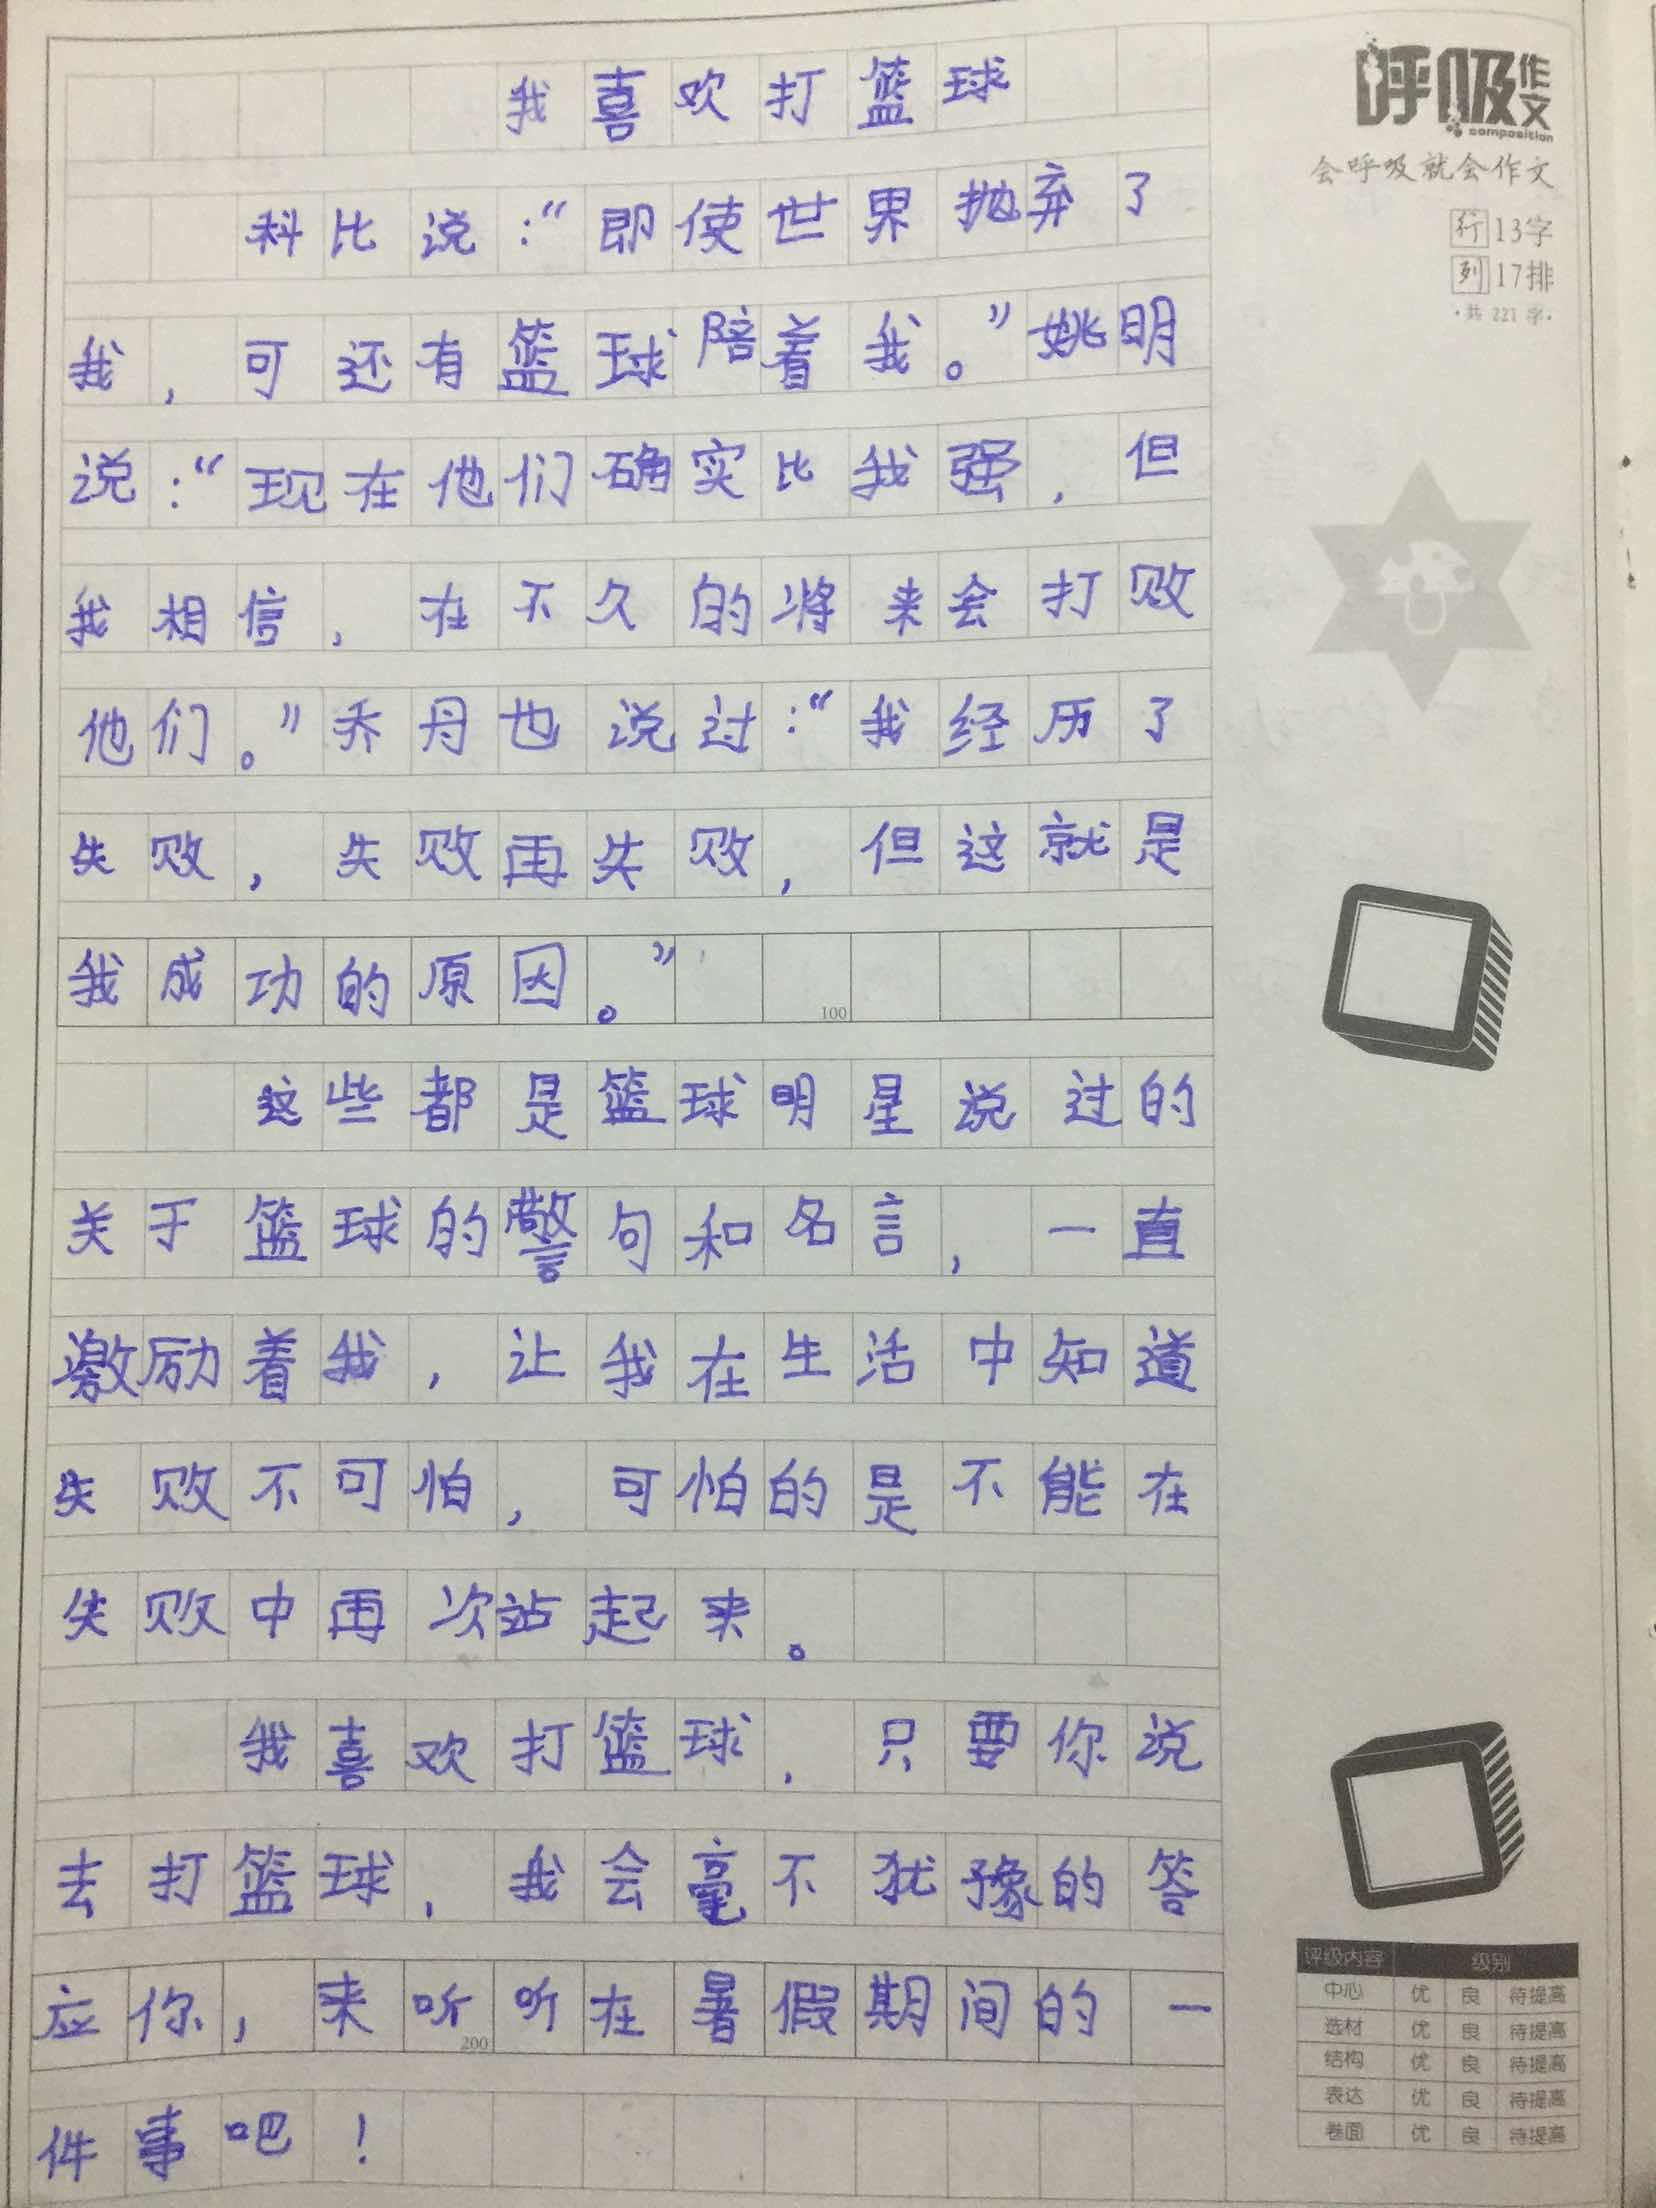 我喜欢打篮球
科比说：“即使世界抛弃了
我，可还有篮球陪着我。”姚明
说：“现在他们确实比我强，但
我相信，在不久的将来会打败
他们。”乔丹也说过：“我经历了
失败，失败再失败，但这就是
我成功的原因。”
100
这些都是篮球明星说过的
关于篮球的警句和名言，一直
激励着我，让我在生活中知道
失败不可怕，可怕的是不能在
失败中再次站起来。
我喜欢打篮球，只要你说
去打篮球，我会毫不犹豫的答
应你，来听听在暑假期间的一
200
件事吧！
呼吸作文
composition
会呼吸就会作文
行 13字
列 17排
·共 221 字·
评级内容 级别
中心 优 良 待提高
选材 优 良 待提高
结构 优 良 待提高
表达 优 良 待提高
卷面 优 良 待提高